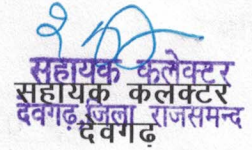 सहायक कलेक्टर
सहायक कलक्टर
देवगढ़ जिला राजसमन्द
देवगढ़